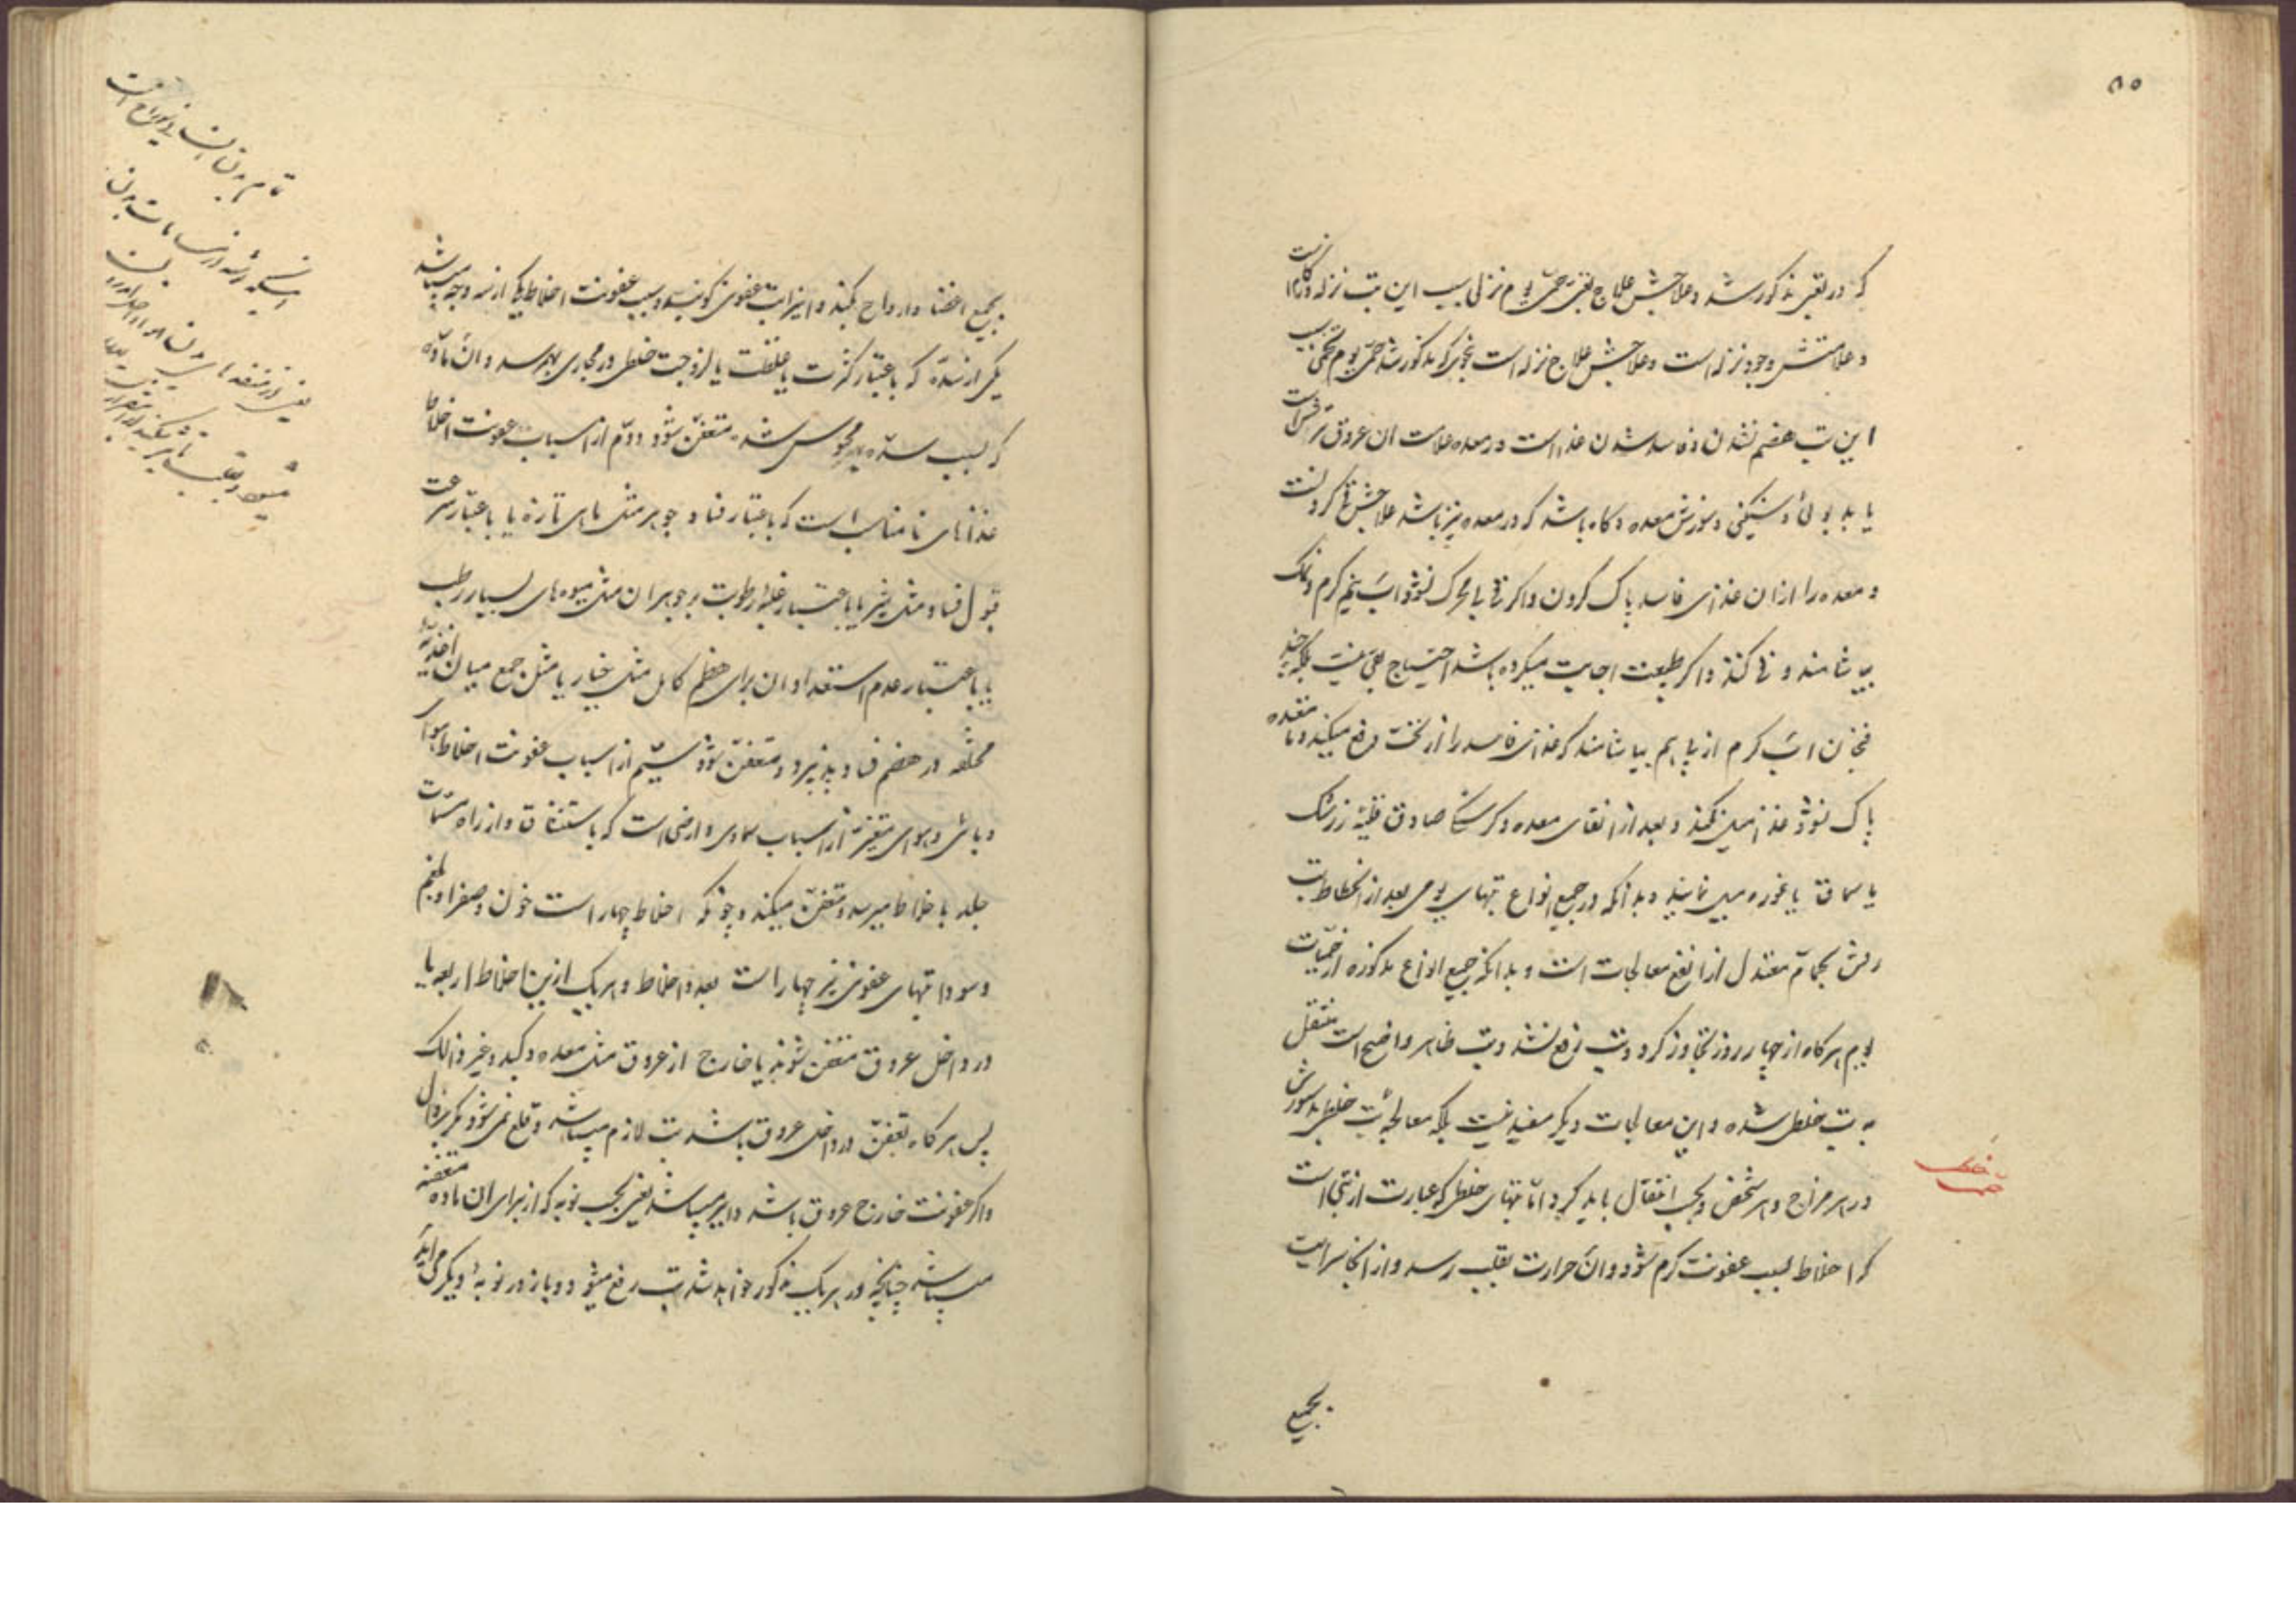 ۸۵
که در تعبی مذکور شد و علاجش علاج تعبی حمی یوم نزلی سبب این تب نزله و زکام است
و علامتش وجود نزله است و علاجش علاج نزله است بنحوی که مذکور شد حمی یوم تخمی سبب
این تب هضم نشدن و فاسد شدن غذا است در معده علامت ان عروق ترش است
یا بد بوئی و سنگینی و سوزش معده و گاه باشد که در معده نیز باشد علاجش قی کردنست
و معده را از ان غذای فاسد پاک کردن و اگر قی بی محرک نشود آب نیم گرم و نمک
بیاشامند و قی کنند و اگر طبیعت اجابت میکرده باشد احتیاج بقی نیست بلکه چند
فنجان آب گرم از پی هم بیاشامند که غذای فاسد را از تحت دفع میکند و تا معده
پاک نشود غذا میل نکند و بعد از انقای معده و گرسنگی صادق قلیه زرشک
یا سماق یا غوره میل نمایند و بدانکه در جمیع انواع تبهای یومی بعد از انحطاط تب
رفتن بحمام معتدل از انفع معالجات است و بدانکه جمیع انواع مذکوره از حمیات
یوم هرگاه از چهار روز تجاوز کرد و تب رفع نشد و تب ظاهر و اضح است منتقل
به تب خلطی شده و این معالجات دیگر مفید نیست بلکه معالجهٔ تب خلطی بدستورش
در هر مزاج و هر شخص و بحسب انتقال باید کرد و اما تبهای خلطی که عبارت از تبی است
که اخلاط بسبب عفونت گرم شود و آن حرارت بقلب رسد و از انجا سرایت
بجمیع
بجمیع اعضا و ارواح کند و انرا تب عفونی گویند و سبب عفونت اخلاط یکی از سه وجه میباشد
یکی از سده که باعتبار کثرت یا غلظت یا لزوجت خلطی در مجاری بهم رسد و آن ماده
که بسبب سده محبوس شده متعفن شود دوم از اسباب عفونت اخلاط
غذاهای نامناسب است که باعتبار فساد جوهر مثل ماهی تازه یا باعتبار سرعت
قبول فساد مثل شیر یا باعتبار غلبهٔ رطوبت بر جوهر ان مثل میوه های بسیار رطب
یا باعتبار عدم استعداد ان برای هضم کامل مثل خیار یا مثل جمع میان اغذیهٔ
مختلفه در هضم فساد پذیرد و متعفن شود سیم از اسباب عفونت اخلاط هوای
وبائی و هوای متغیر از اسباب سماوی و ارضی است که باستنشاق و از راه مسامات
جلد باخلاط میرسد و متعفن میکند و چونکه اخلاط چهار است خون و صفرا و بلغم
و سودا تبهای عفونی نیز چهار است بعدد اخلاط و هر یک ازین اخلاط اربعه یا
در داخل عروق متعفن شوند یا خارج از عروق مثل معده و کبد و غیر ذالک
پس هرگاه تعفن در داخل عروق باشد تب لازم میباشد و قلع نمی شود مگر بزوال
و اگر عفونت خارج عروق باشد دایر میباشد یعنی بحسب نوبه که از برای ان ماده متعفنه
میباشد چنانچه در هر یک مذکور خواهد شد تب رفع میشود و باز در نوبهٔ دیگر می آید
تمام بدن